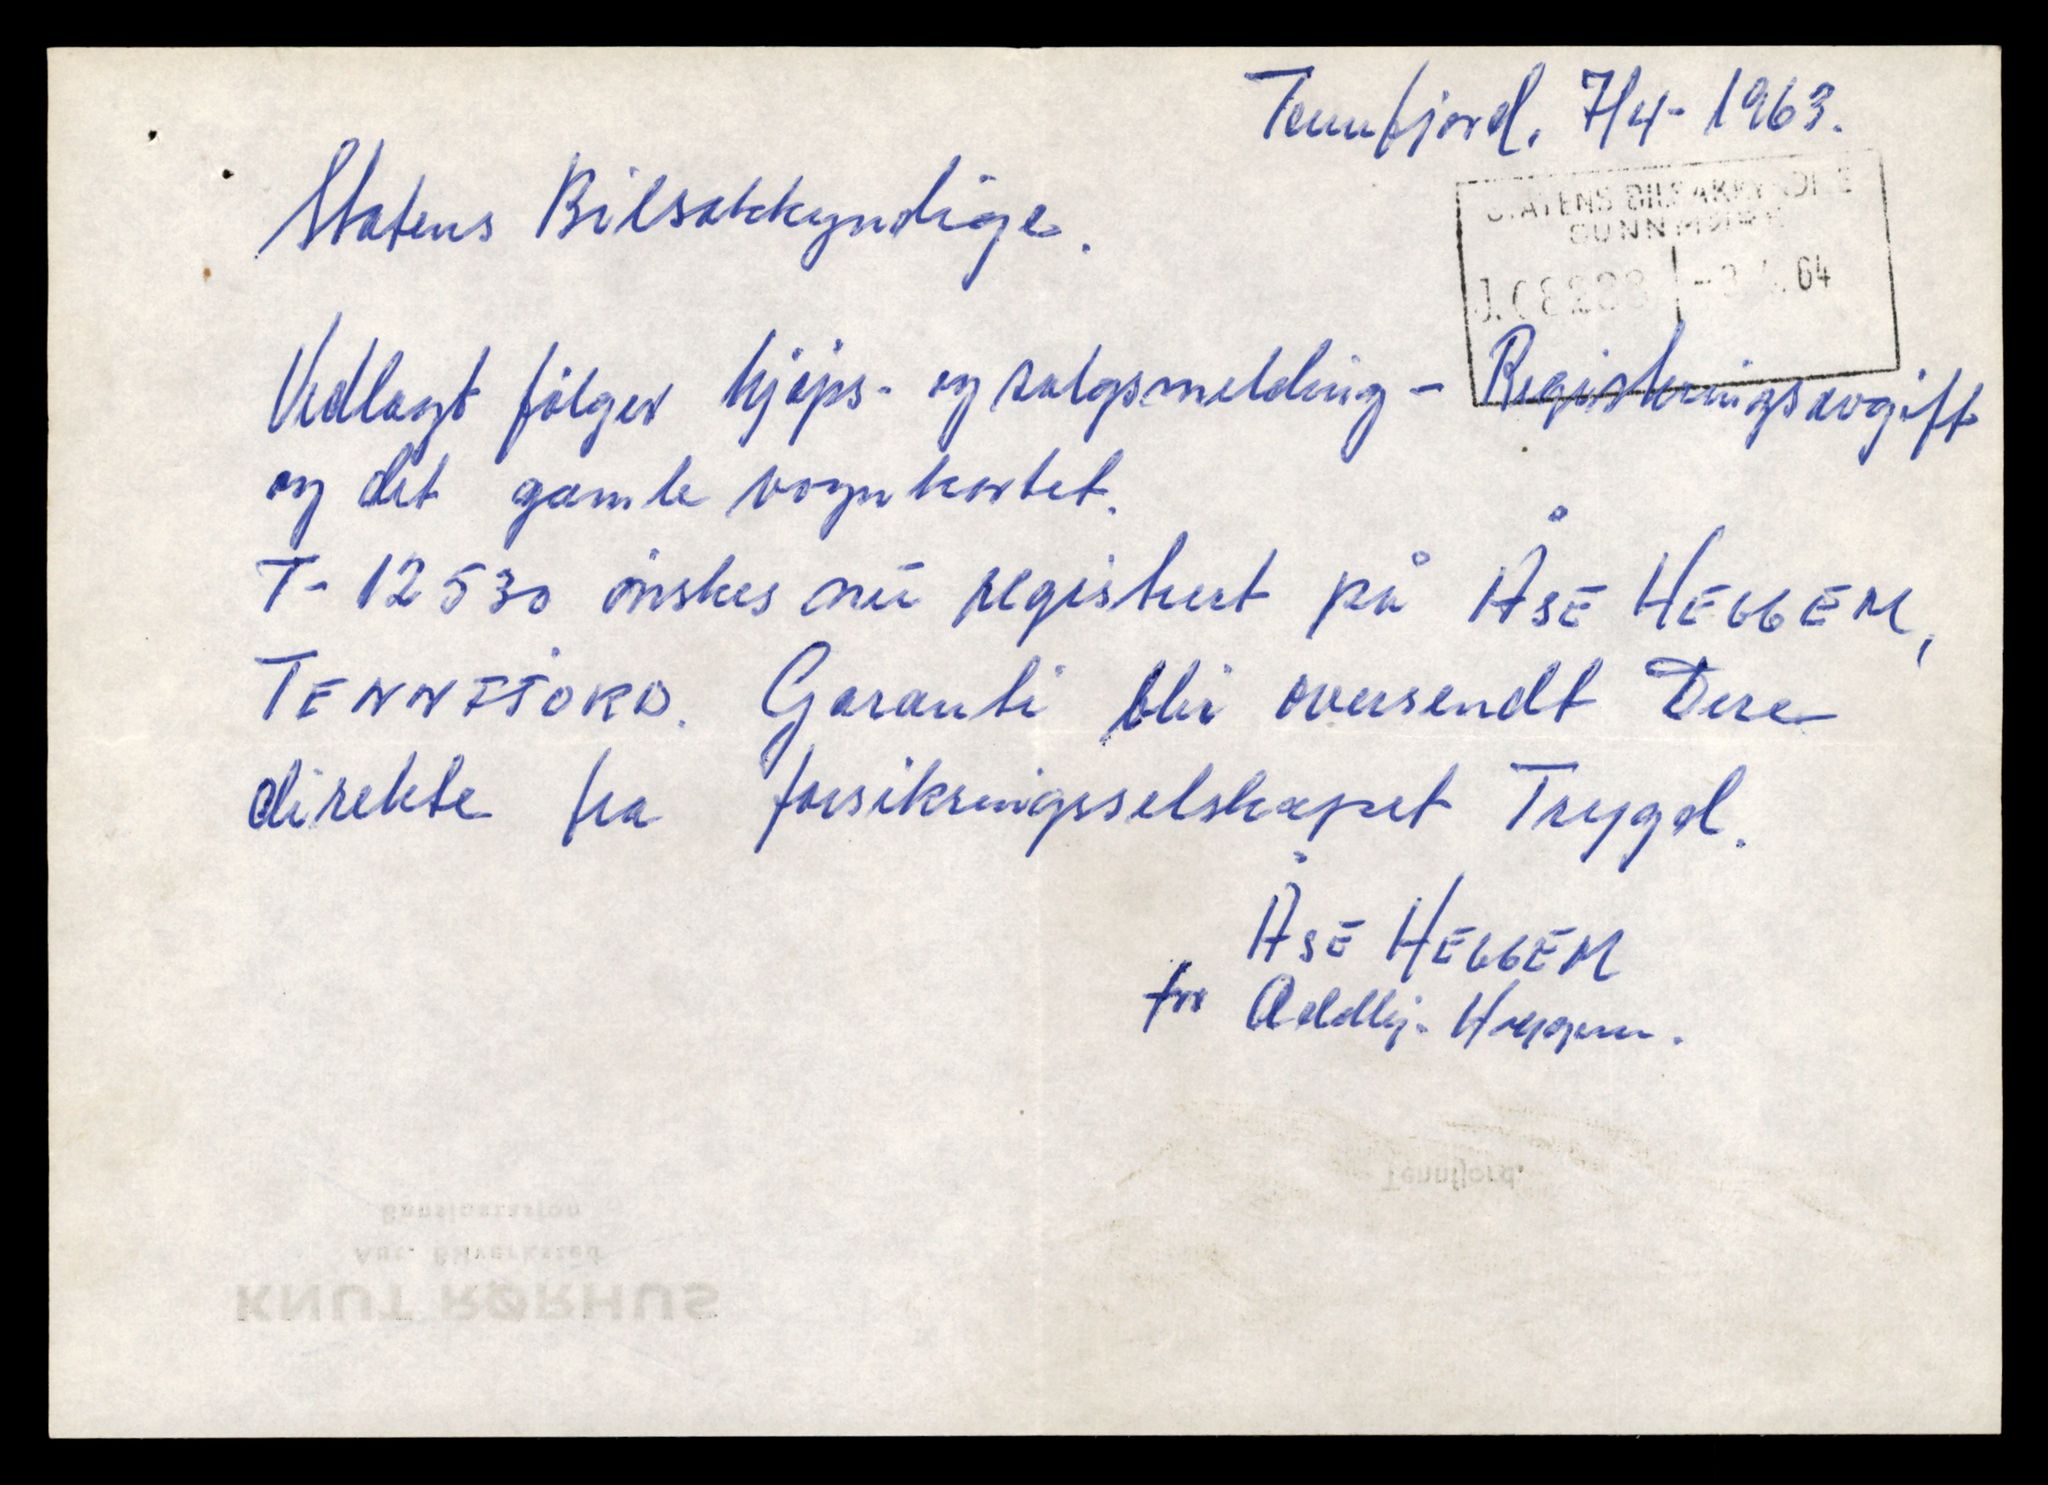 Tennfjord, 7/4-1963.
STATENS BILSAKKYNDIGE
SUNNMØRE
64
Statens Bilsakkyndige.
Vedlagt følger kjøps- og salgsmelding - Registreringsavgift
og det gamle vognkortet.
T-12530 ønskes nu registrert på ÅSE HEGGEM,
TENNFJORD. Garanti blir oversendt Dere
direkte fra forsikringsselskapet Trygd.
ÅSE HEGGEM
for Heggem.
Tennfjord.
Bensinstasjon
Aut. Bilverksted
KNUT RØRHUS